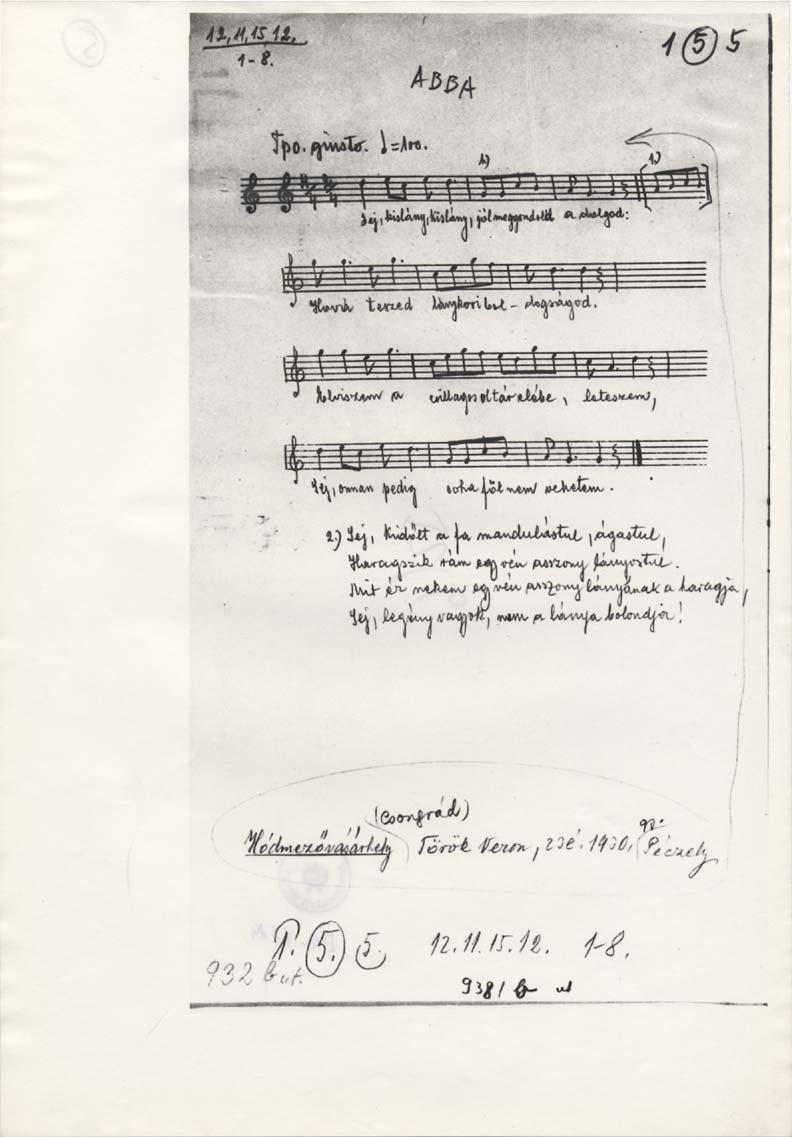 12, 11, 15, 12.
1-8.
1 5 5
ABBA
Tpo. giusto. =100.
1.)
1.)
Jej, kislány, kislány, jól meggondold a dolgod:
Hová teszed lánykori bol-dogságod.
Elviszem a csillagos oltár elébe, leteszem,
Jej, onnan pedig soha föl nem vehetem.
2.) Jej, kidőlt a fa mandulástul, ágastul,
Haragszik rám egy vén asszony lányostul.
Mit ér nekem egy vén asszony lányának a haragja,
Jej, legény vagyok, nem a lánya bolondja!
(Csongrád)
Hódmezővásárhely Török Veron, 23é. 1930, gy. Péczely
1. 5. 5. 12. 11. 15. 12. 1-8.
932 b ut.
938/b ut